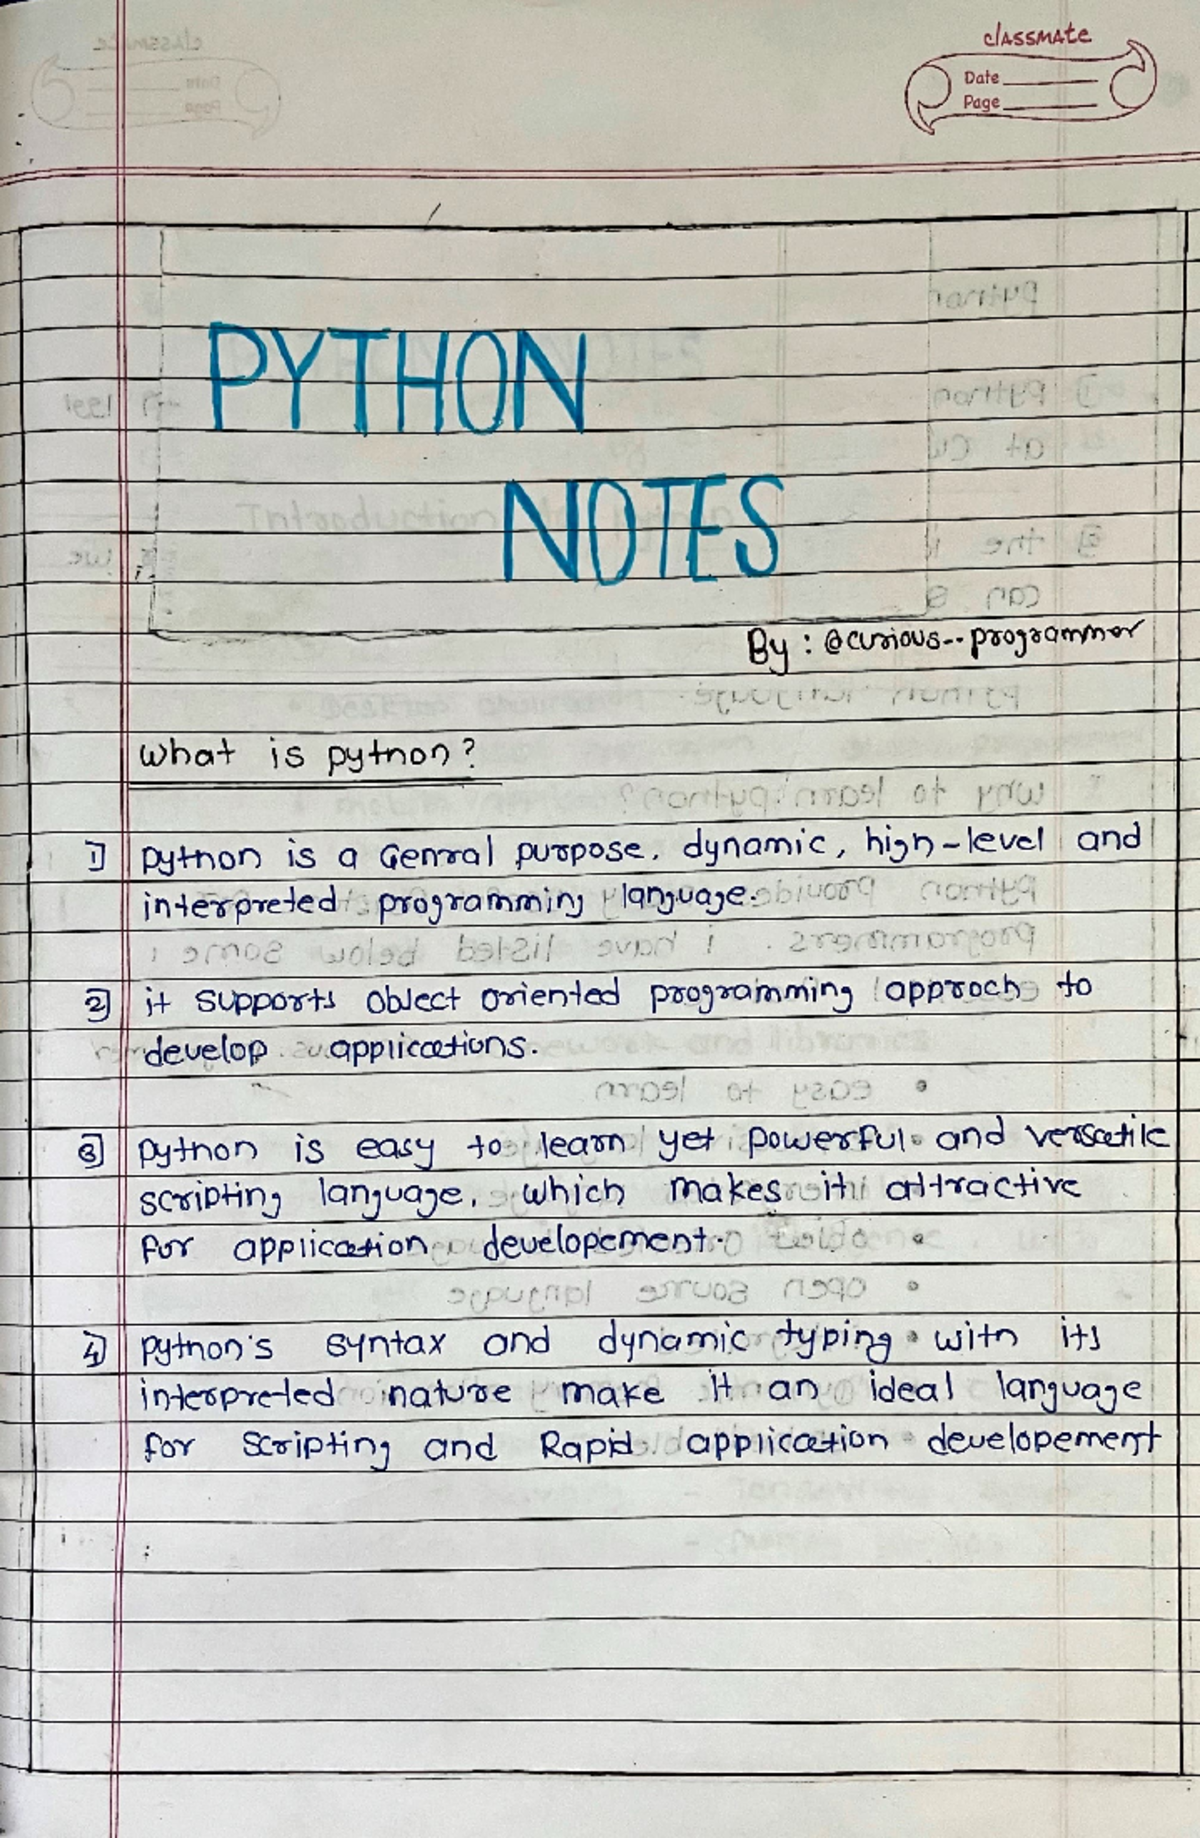 classmate
Date
Page
PYTHON
NOTES
By : @curious--programmer
What is python?
1] python is a Genral purpose, dynamic, high-level and
interpreted programming language.
2] it supports object oriented programming approch to
develop applications.
3] python is easy to learn yet powerful and versatile
scripting language, which makes it attractive
for application developement.
4] python's syntax and dynamic typing with its
interpreted nature make it an ideal language
for scripting and Rapid application developement